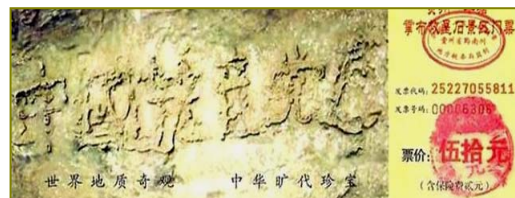 中國共産党
世界地质奇观 中华旷代珍宝
掌布救星石景区门票
贵州省黔南州
发票代码: 25227055811
发票号码: 00006306
票价: 伍拾元
(含保险费贰元)